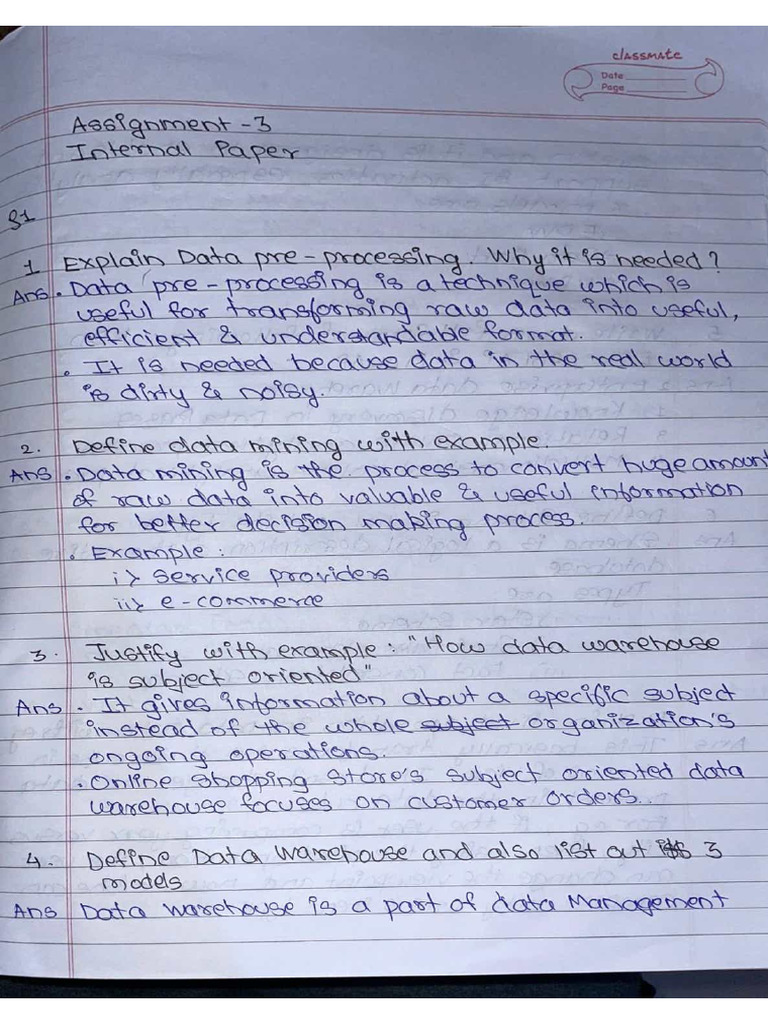 classmate
Date
Page
Assignment - 3
Internal Paper
1 Explain Data pre-processing. Why it is needed?
Ans. • Data pre-processing is a technique which is
useful for transforming raw data into useful,
efficient & understandable format.
• It is needed because data in the real world
is dirty & noisy.
2. Define data mining with example.
Ans • Data mining is the process to convert huge amount
of raw data into valuable & useful information
for better decision making process.
• Example :
i> service providers
ii> e-commerce
3. Justify with example: "How data warehouse
is subject oriented"
Ans • It gives information about a specific subject
instead of the whole subject organization's
ongoing operations.
• Online shopping store's subject oriented data
warehouse focuses on customer orders..
4. Define Data Warehouse and also list out its 3
models
Ans Data warehouse is a part of data Management